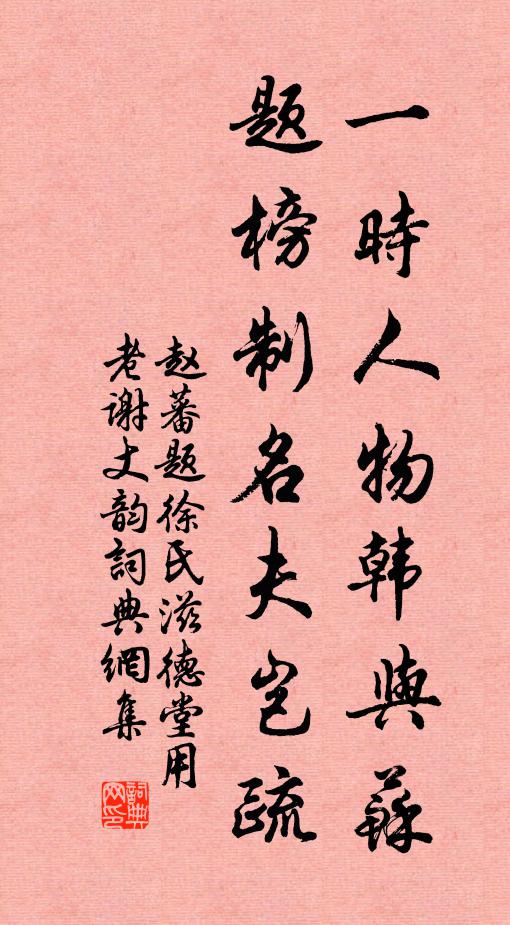 一時人物韩與蘇
题榜制名夫岂疏
赵蕃题徐氏滋德堂用
老谢丈韵詞典網集
詞典网印